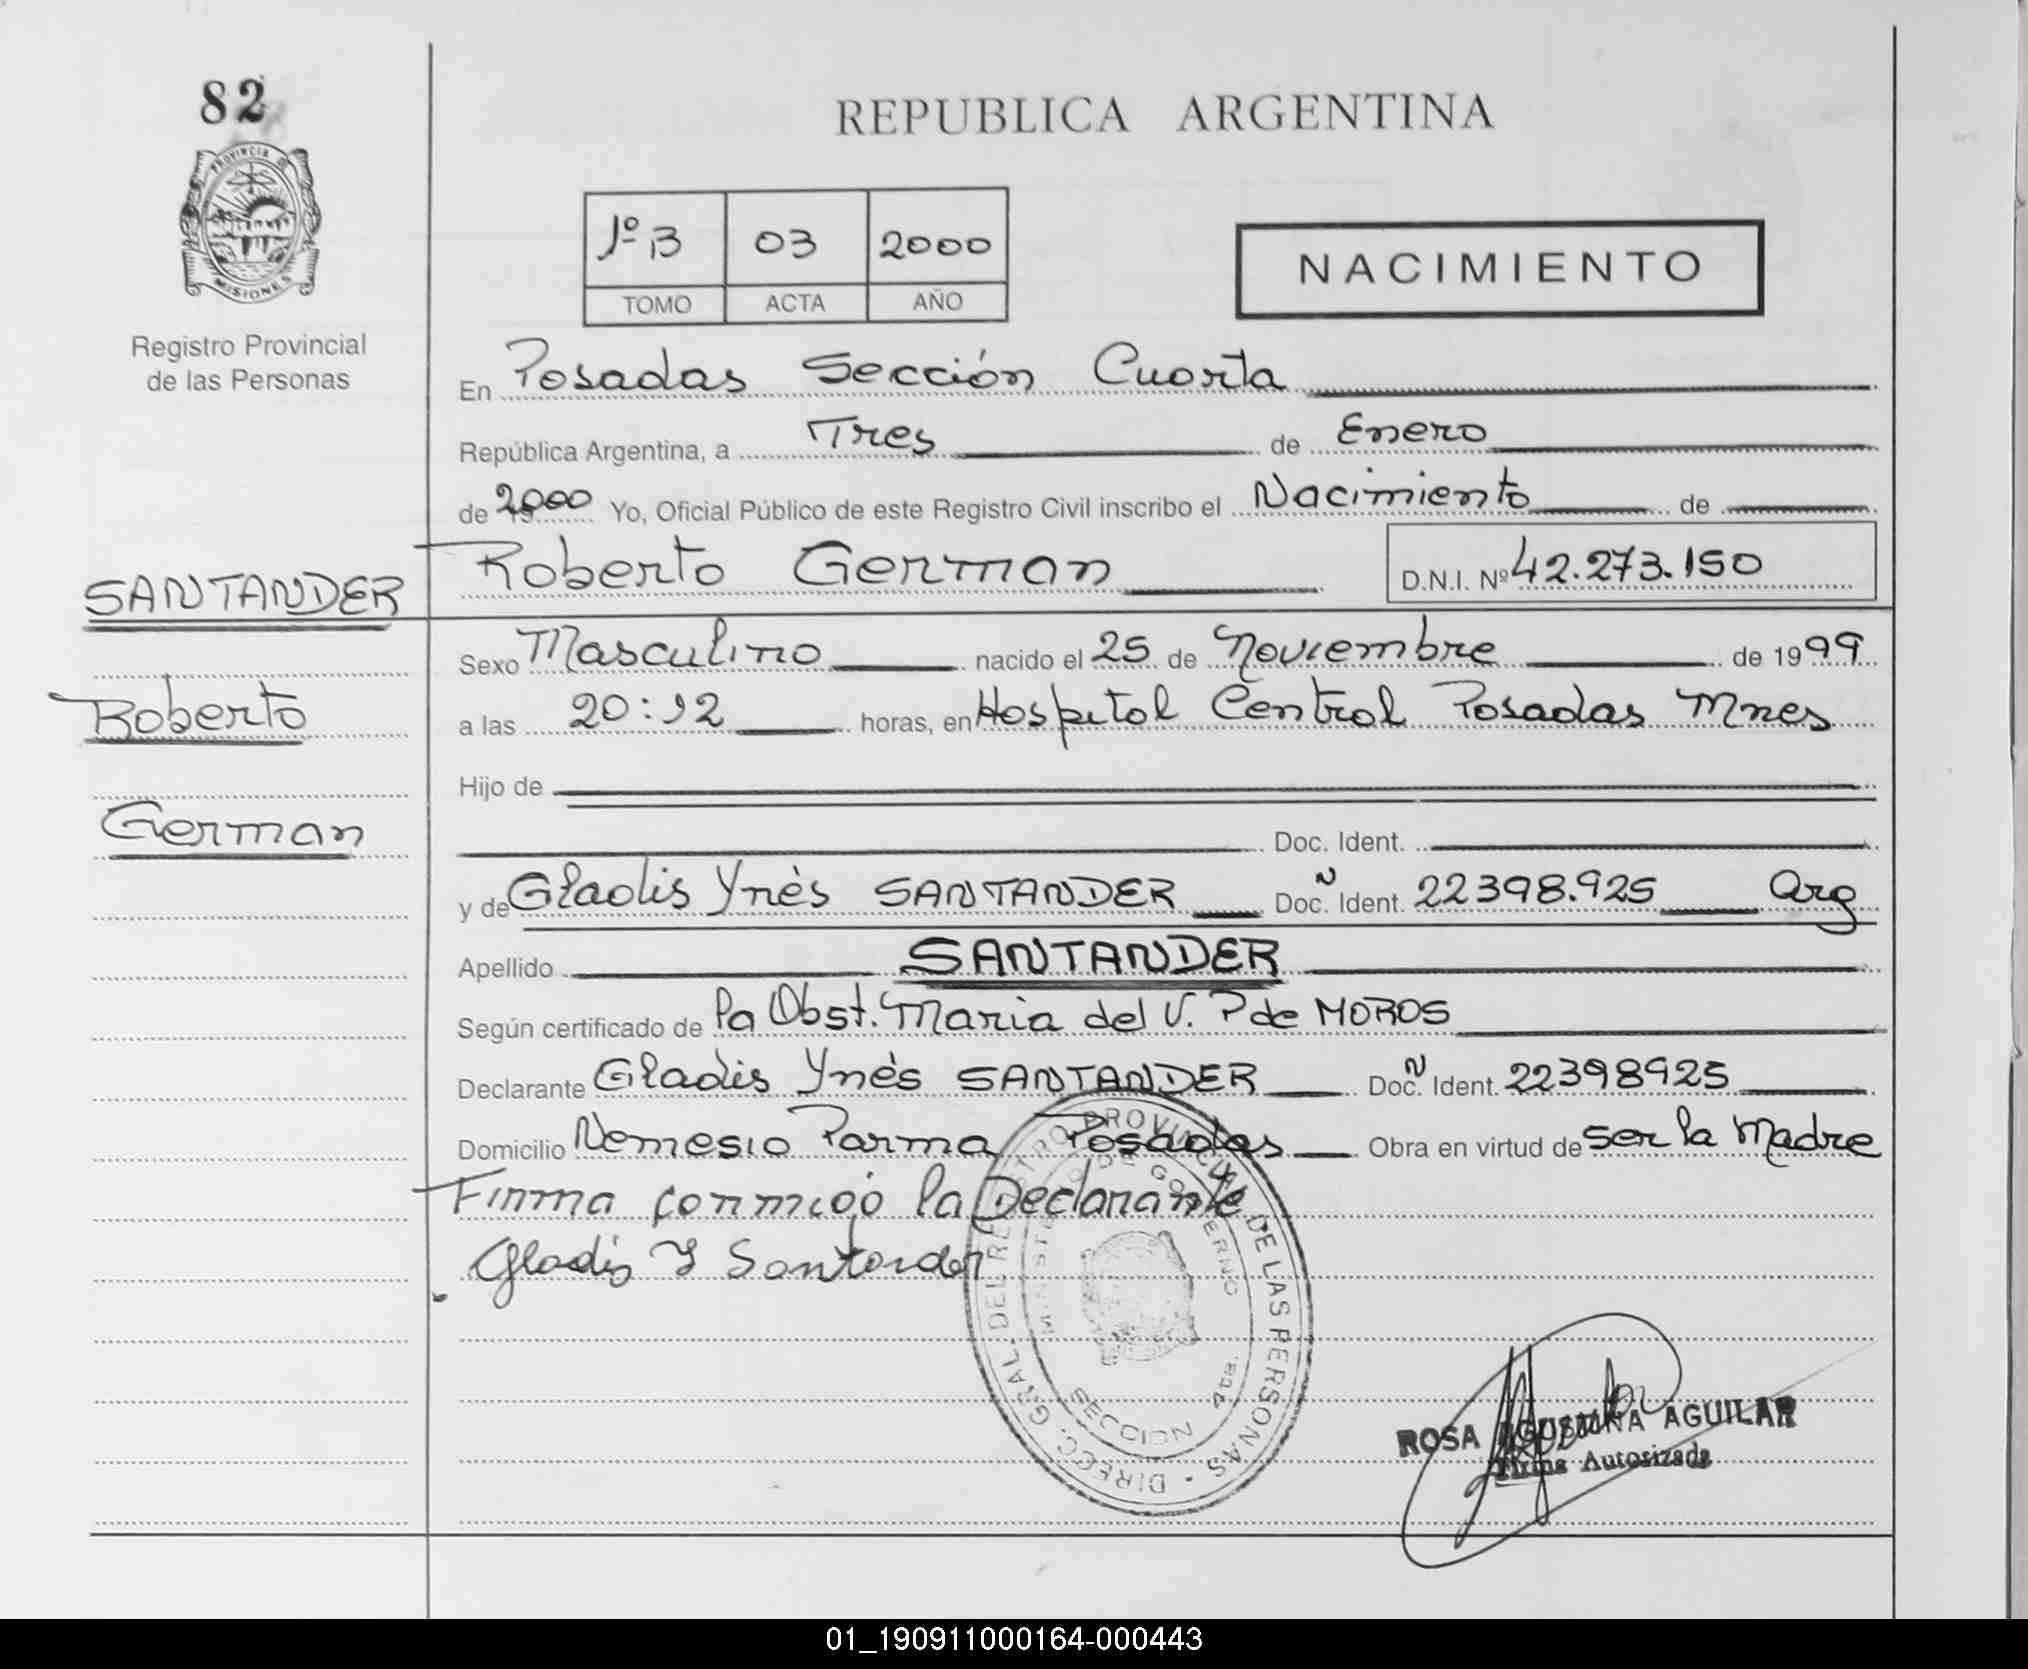 82
PROVINCIA D
MISIONES
Registro Provincial
de las Personas
SANTANDER
Roberto
German
REPUBLICA ARGENTINA
1º B 03 2000
TOMO ACTA AÑO
NACIMIENTO
En Posadas Sección Cuarta
República Argentina, a Tres de Enero
de 2000 Yo, Oficial Público de este Registro Civil inscribo el Nacimiento de
Roberto German D.N.I. Nº 42.273.150
Sexo Masculino nacido el 25 de Noviembre de 1999
a las 20:12 horas, en Hospital Central Posadas Mnes
Hijo de
Doc. Ident.
y de Gladis Ynés SANTANDER Doc. N Ident. 22398.925 Arg
Apellido SANTANDER
Según certificado de la Obst. Maria del V. P de MOROS
Declarante Gladis Ynés SANTANDER Doc. N Ident. 22398925
Domicilio Nemesio Parma Posadas Obra en virtud de ser la Madre
Firma conmigo la Declarante
Gladis Y Santander
DIRECC. GRAL. DEL REGISTRO PROVINCIAL DE LAS PERSONAS
MINISTERIO DE GOBIERNO
SECCION
ROSA AGUSTINA AGUILAR
Firma Autorizada
01_190911000164-000443